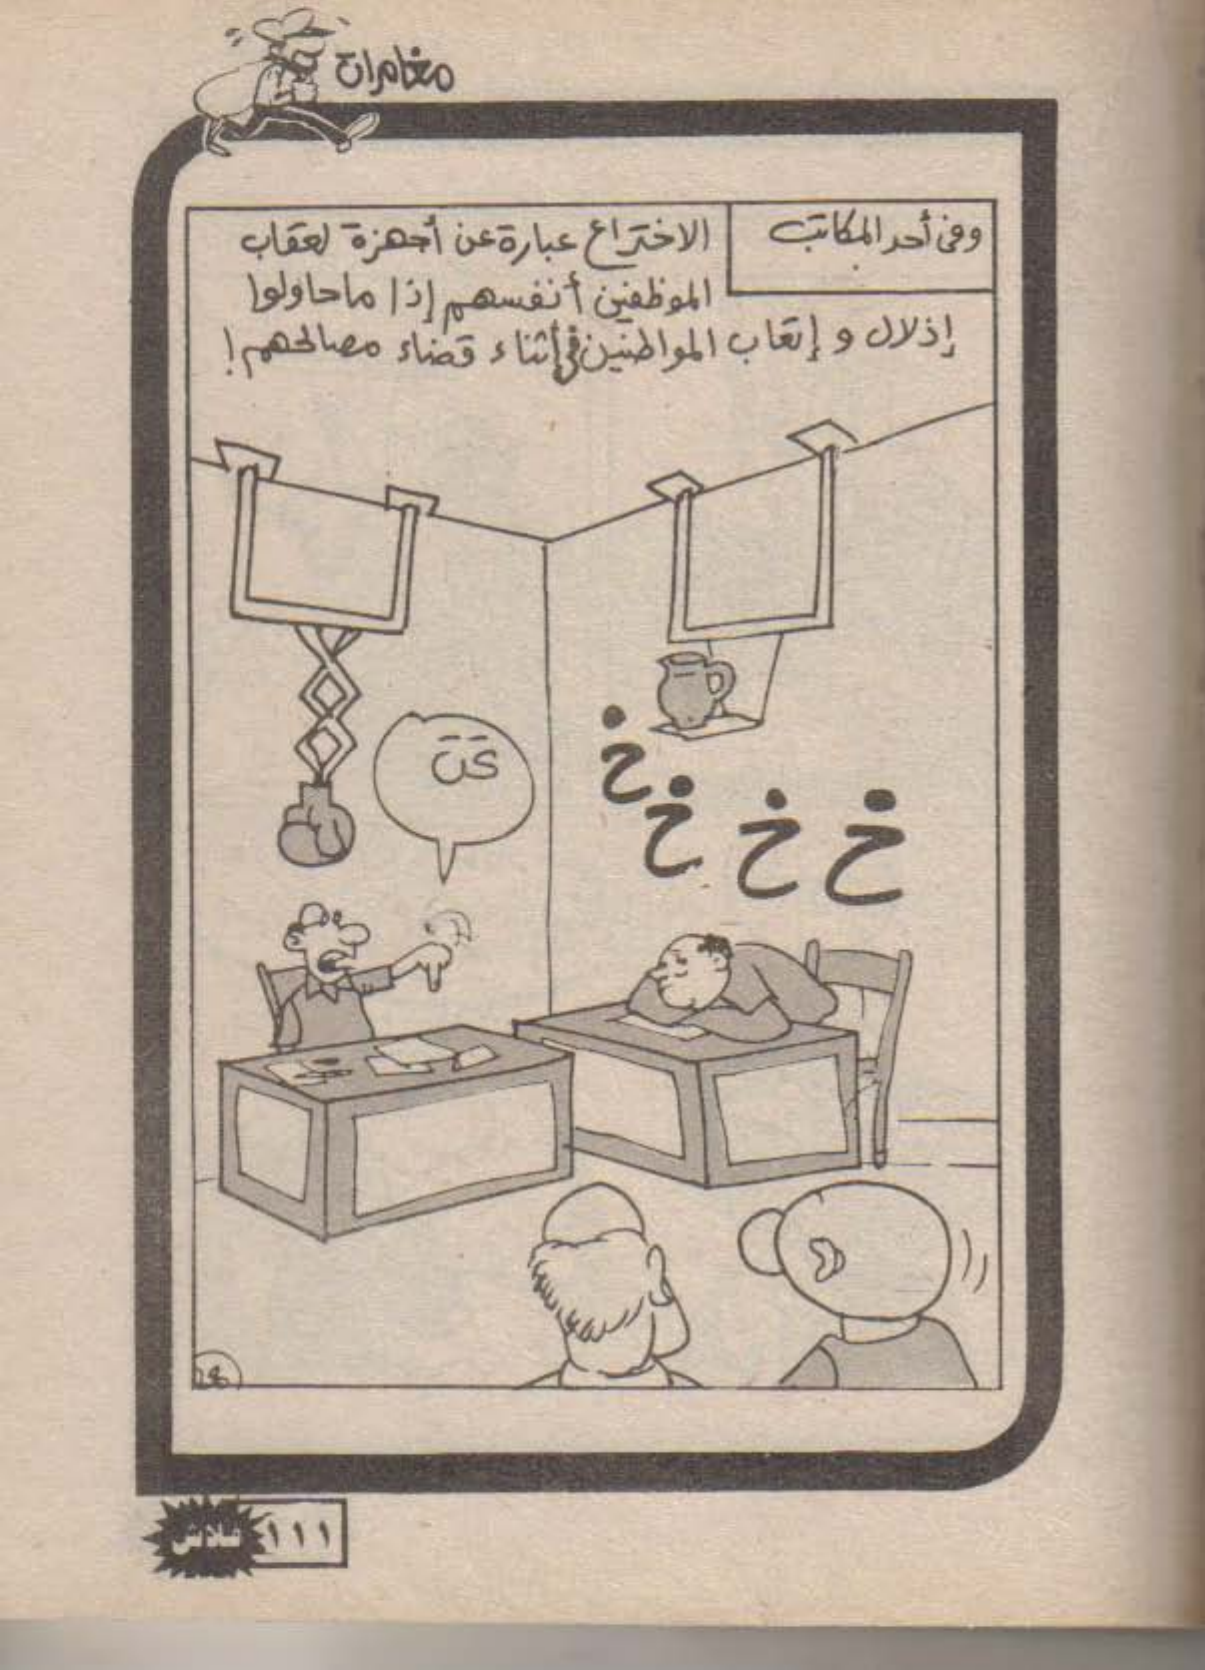 مغامرات
وفى أحد المكاتب
الاختراع عبارة عن أجهزة لعقاب
الموظفين أنفسهم إذا ما حاولوا
إذلال و إتعاب المواطنين فى أثناء قضاء مصالحهم !
خ خ خ خ
18
١١١
فلاش